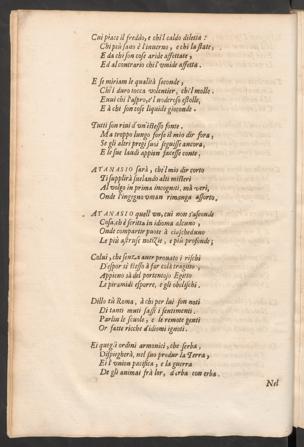 Cui piace il freddo, e chi'l caldo diletta:
Chi più saro è l'inuerno, e chi la state,
E da chi son cose aride affettate,
Ed al contrario chi l'vmide affetta.
E se miriam le qualità seconde,
Ch'i duro tocca volentier, chi'l molle.
Euui chi l'aspro, e'l noderoso estolle,
E à che son cose liquide gioconde.
Tutti son riui d'vn'istesso fonte.
Ma troppo lungo forse il mio dir fora,
Se gli altri pregi suoi seguisse ancora,
E le sue laudi appien facesse conte.
ATANASIO sarà, che'l mio dir corto
Ti supplirà suelando alti misteri
Al volgo in prima incogniti, mà veri,
Onde l'ingegno vman rimanga assorto.
ATANASIO quell'vn, cui non s'asconde
Cosa, ch'è scritta in idioma alcuno,
Onde compartir puote à ciascheduno
Le più astruse notizie, e più profonde;
Colui, che senza auer prouato i rischi
D'espor sè stesso à far colà tragitto,
Appieno sà del portentoso Egitto
Le piramidi esporre, e gli obelischi.
Dillo tù Roma, à chi per lui son noti
Di tanti muti sassi i sentimenti.
Parlin le scuole, e le remote genti
Or fatte ricche d'idiomi ignoti.
Ei quegli ordini armonici, che serba,
Dispiegherà, nel suo produr la Terra,
Ei l'vnion pacifica, e la guerra
De gli animai frà lor, d'erba con erba.
Nel